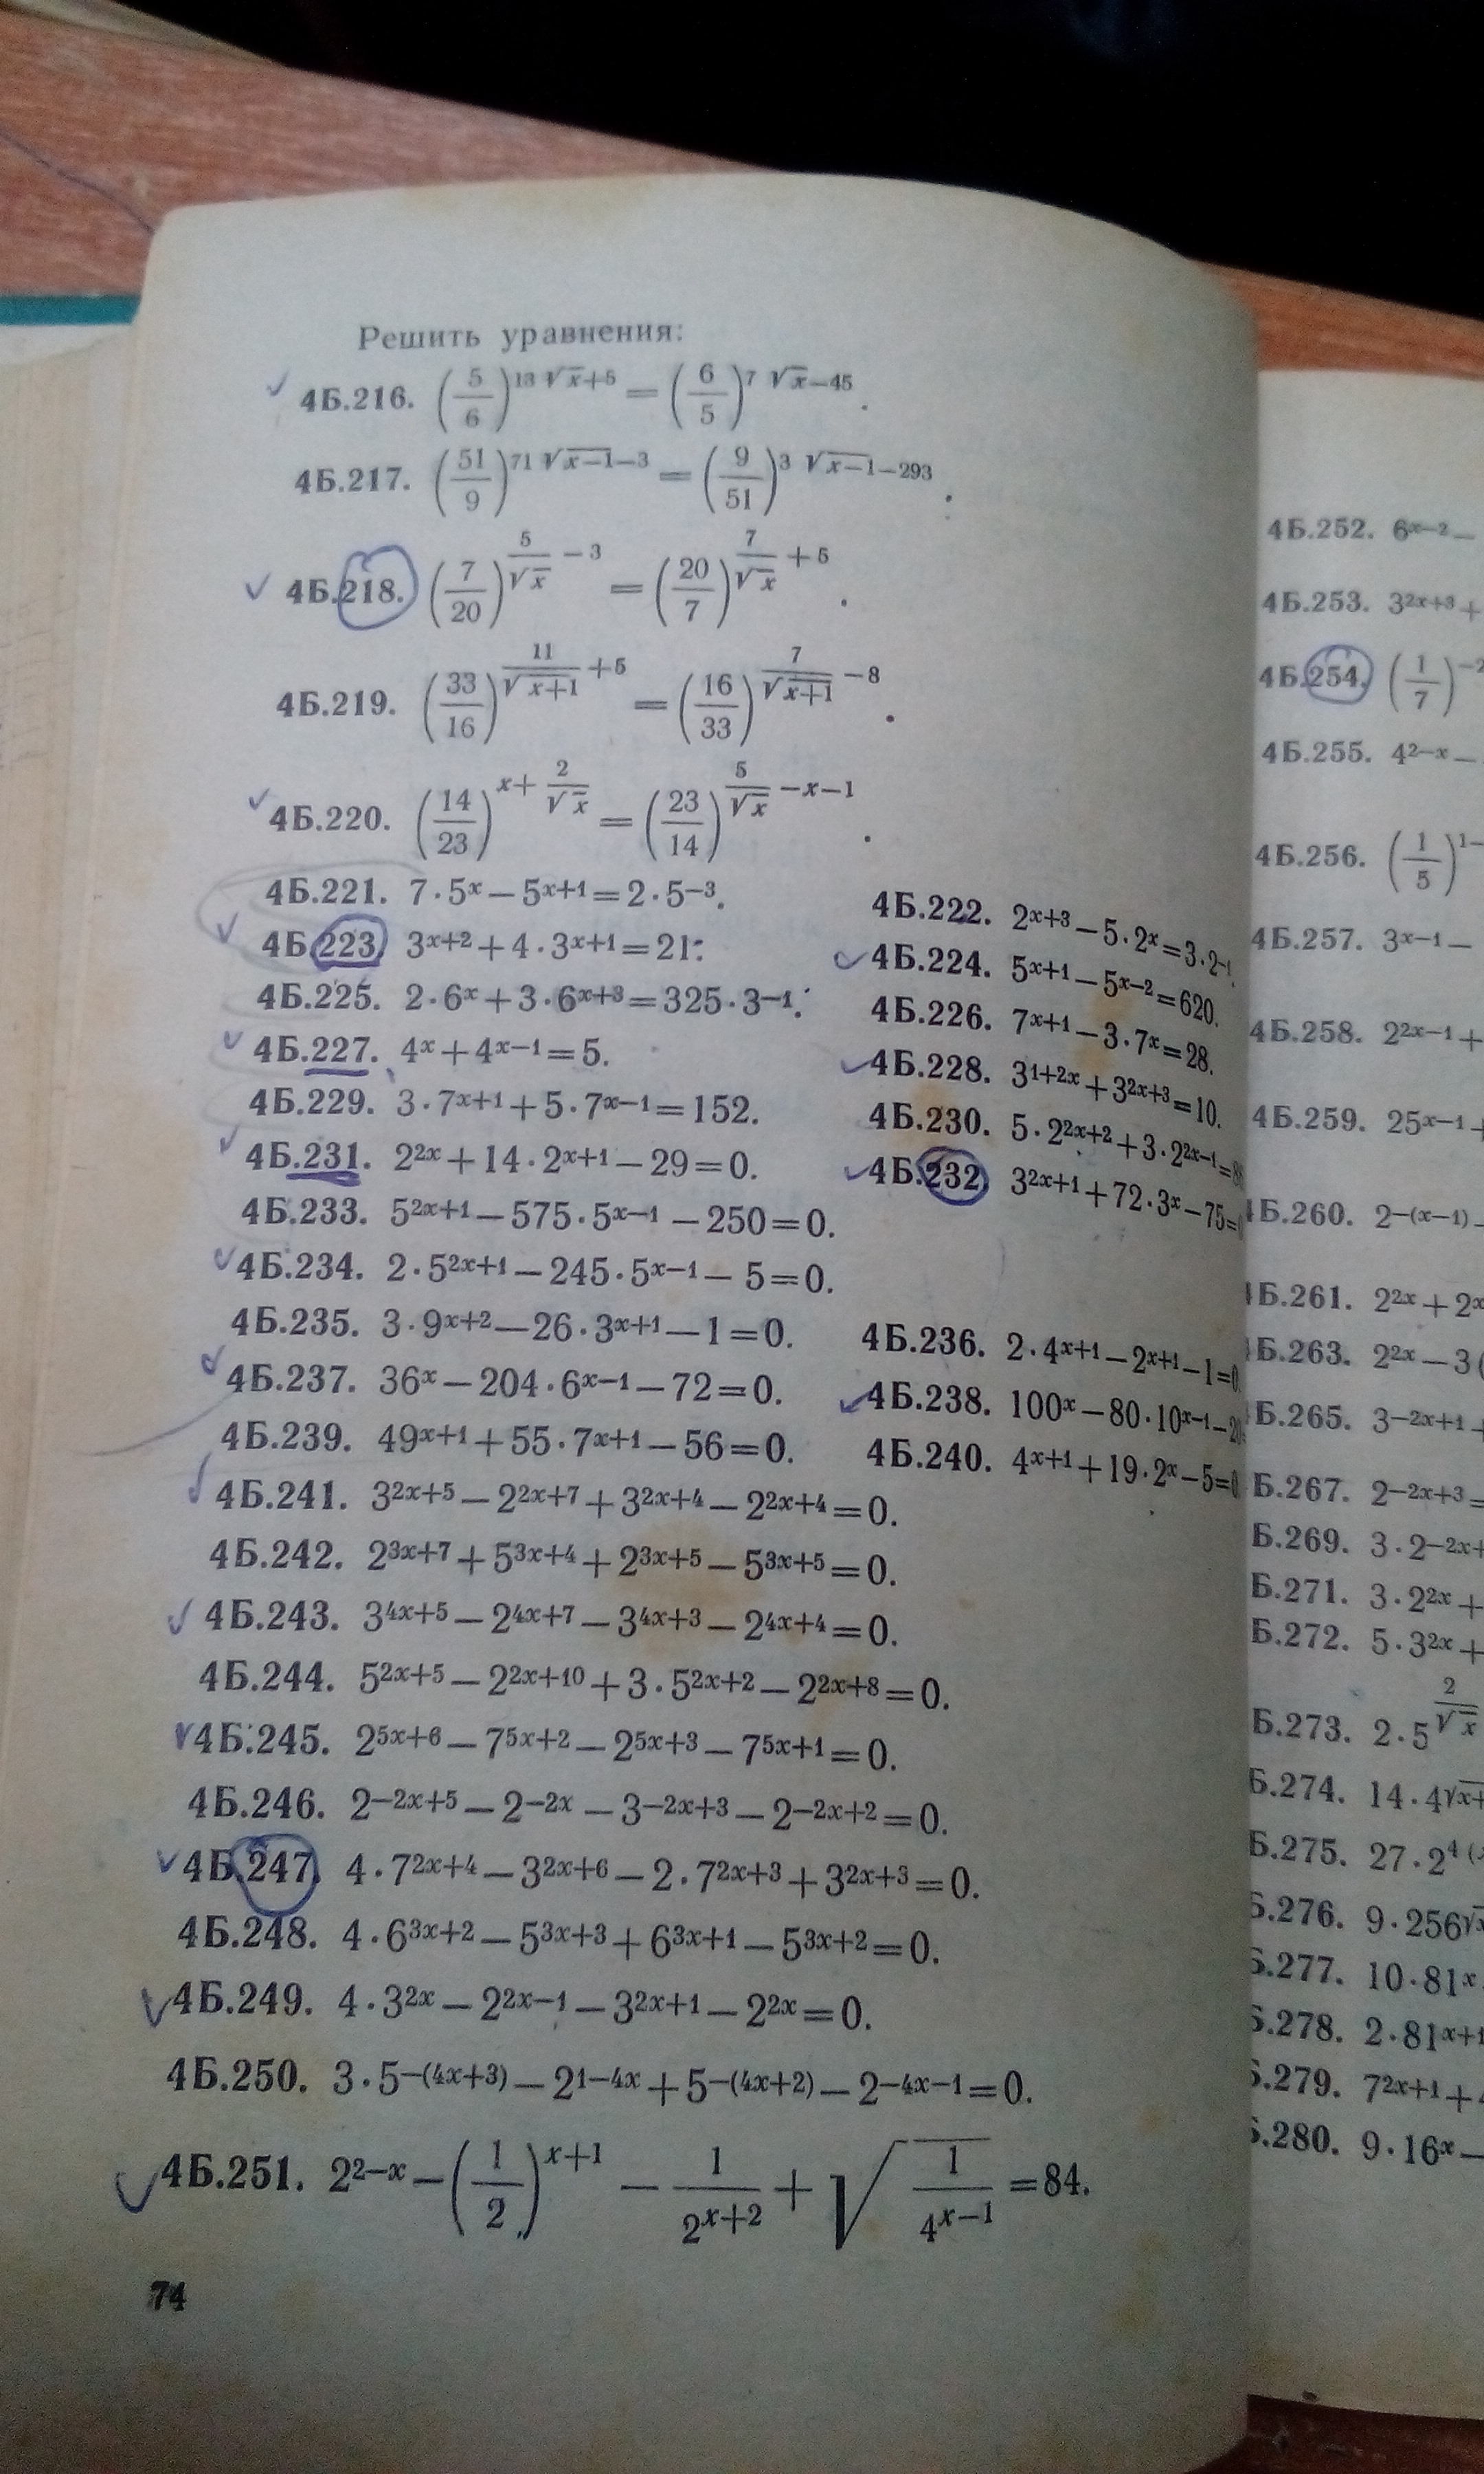 Решить уравнения:
4Б.216. (5/6)^{13√x+5} = (6/5)^{7√x−45}.
4Б.217. (51/9)^{71√(x−1)−3} = (9/51)^{3√(x−1)−293}.
4Б.218. (7/20)^{5/√x −3} = (20/7)^{7/√x +5}.
4Б.219. (33/16)^{11/√(x+1) +5} = (16/33)^{7/√(x+1) −8}.
4Б.220. (14/23)^{x+ 2/√x} = (23/14)^{5/√x −x−1}.
4Б.221. 7·5^x − 5^{x+1} = 2·5^{−3}. 4Б.222. 2^{x+3} − 5·2^x = 3·2^{−1}
4Б.223 3^{x+2} + 4·3^{x+1} = 21. 4Б.224. 5^{x+1} − 5^{x−2} = 620.
4Б.225. 2·6^x + 3·6^{x+3} = 325·3^{−1}. 4Б.226. 7^{x+1} − 3·7^x = 28.
4Б.227. 4^x + 4^{x−1} = 5. 4Б.228. 3^{1+2x} + 3^{2x+3} = 10.
4Б.229. 3·7^{x+1} + 5·7^{x−1} = 152. 4Б.230. 5·2^{2x+2} + 3·2^{2x−1} =
4Б.231. 2^{2x} + 14·2^{x+1} − 29 = 0. 4Б.232. 3^{2x+1} + 72·3^x − 75 =
4Б.233. 5^{2x+1} − 575·5^{x−1} − 250 = 0.
4Б.234. 2·5^{2x+1} − 245·5^{x−1} − 5 = 0.
4Б.235. 3·9^{x+2} − 26·3^{x+1} − 1 = 0. 4Б.236. 2·4^{x+1} − 2^{x+1} − 1 = 0
4Б.237. 36^x − 204·6^{x−1} − 72 = 0. 4Б.238. 100^x − 80·10^{x−1} − 20
4Б.239. 49^{x+1} + 55·7^{x+1} − 56 = 0. 4Б.240. 4^{x+1} + 19·2^x − 5 = 0
4Б.241. 3^{2x+5} − 2^{2x+7} + 3^{2x+4} − 2^{2x+4} = 0.
4Б.242. 2^{3x+7} + 5^{3x+4} + 2^{3x+5} − 5^{3x+5} = 0.
4Б.243. 3^{4x+5} − 2^{4x+7} − 3^{4x+3} − 2^{4x+4} = 0.
4Б.244. 5^{2x+5} − 2^{2x+10} + 3·5^{2x+2} − 2^{2x+8} = 0.
4Б.245. 2^{5x+6} − 7^{5x+2} − 2^{5x+3} − 7^{5x+1} = 0.
4Б.246. 2^{−2x+5} − 2^{−2x} − 3^{−2x+3} − 2^{−2x+2} = 0.
4Б.247. 4·7^{2x+4} − 3^{2x+6} − 2·7^{2x+3} + 3^{2x+3} = 0.
4Б.248. 4·6^{3x+2} − 5^{3x+3} + 6^{3x+1} − 5^{3x+2} = 0.
4Б.249. 4·3^{2x} − 2^{2x−1} − 3^{2x+1} − 2^{2x} = 0.
4Б.250. 3·5^{−(4x+3)} − 2^{1−4x} + 5^{−(4x+2)} − 2^{−4x−1} = 0.
4Б.251. 2^{2−x} − (1/2)^{x+1} − 1/2^{x+2} + √(1/4^{x−1}) = 84.
74
4Б.252. 6^{x−2} −
4Б.253. 3^{2x+3} +
4Б.254. (1/7)^{−2
4Б.255. 4^{2−x} −
4Б.256. (1/5)^{1−
4Б.257. 3^{x−1} −
4Б.258. 2^{2x−1} +
4Б.259. 25^{x−1} +
Б.260. 2^{−(x−1)} −
Б.261. 2^{2x} + 2^x
Б.263. 2^{2x} − 3(
Б.265. 3^{−2x+1} +
Б.267. 2^{−2x+3} =
Б.269. 3·2^{−2x+
Б.271. 3·2^{2x} +
Б.272. 5·3^{2x} +
Б.273. 2·5^{2/√x}
Б.274. 14·4^{√x+
Б.275. 27·2^{4(
Б.276. 9·256^{√x
Б.277. 10·81^x
Б.278. 2·81^{x+1
Б.279. 7^{2x+1} +
Б.280. 9·16^x −